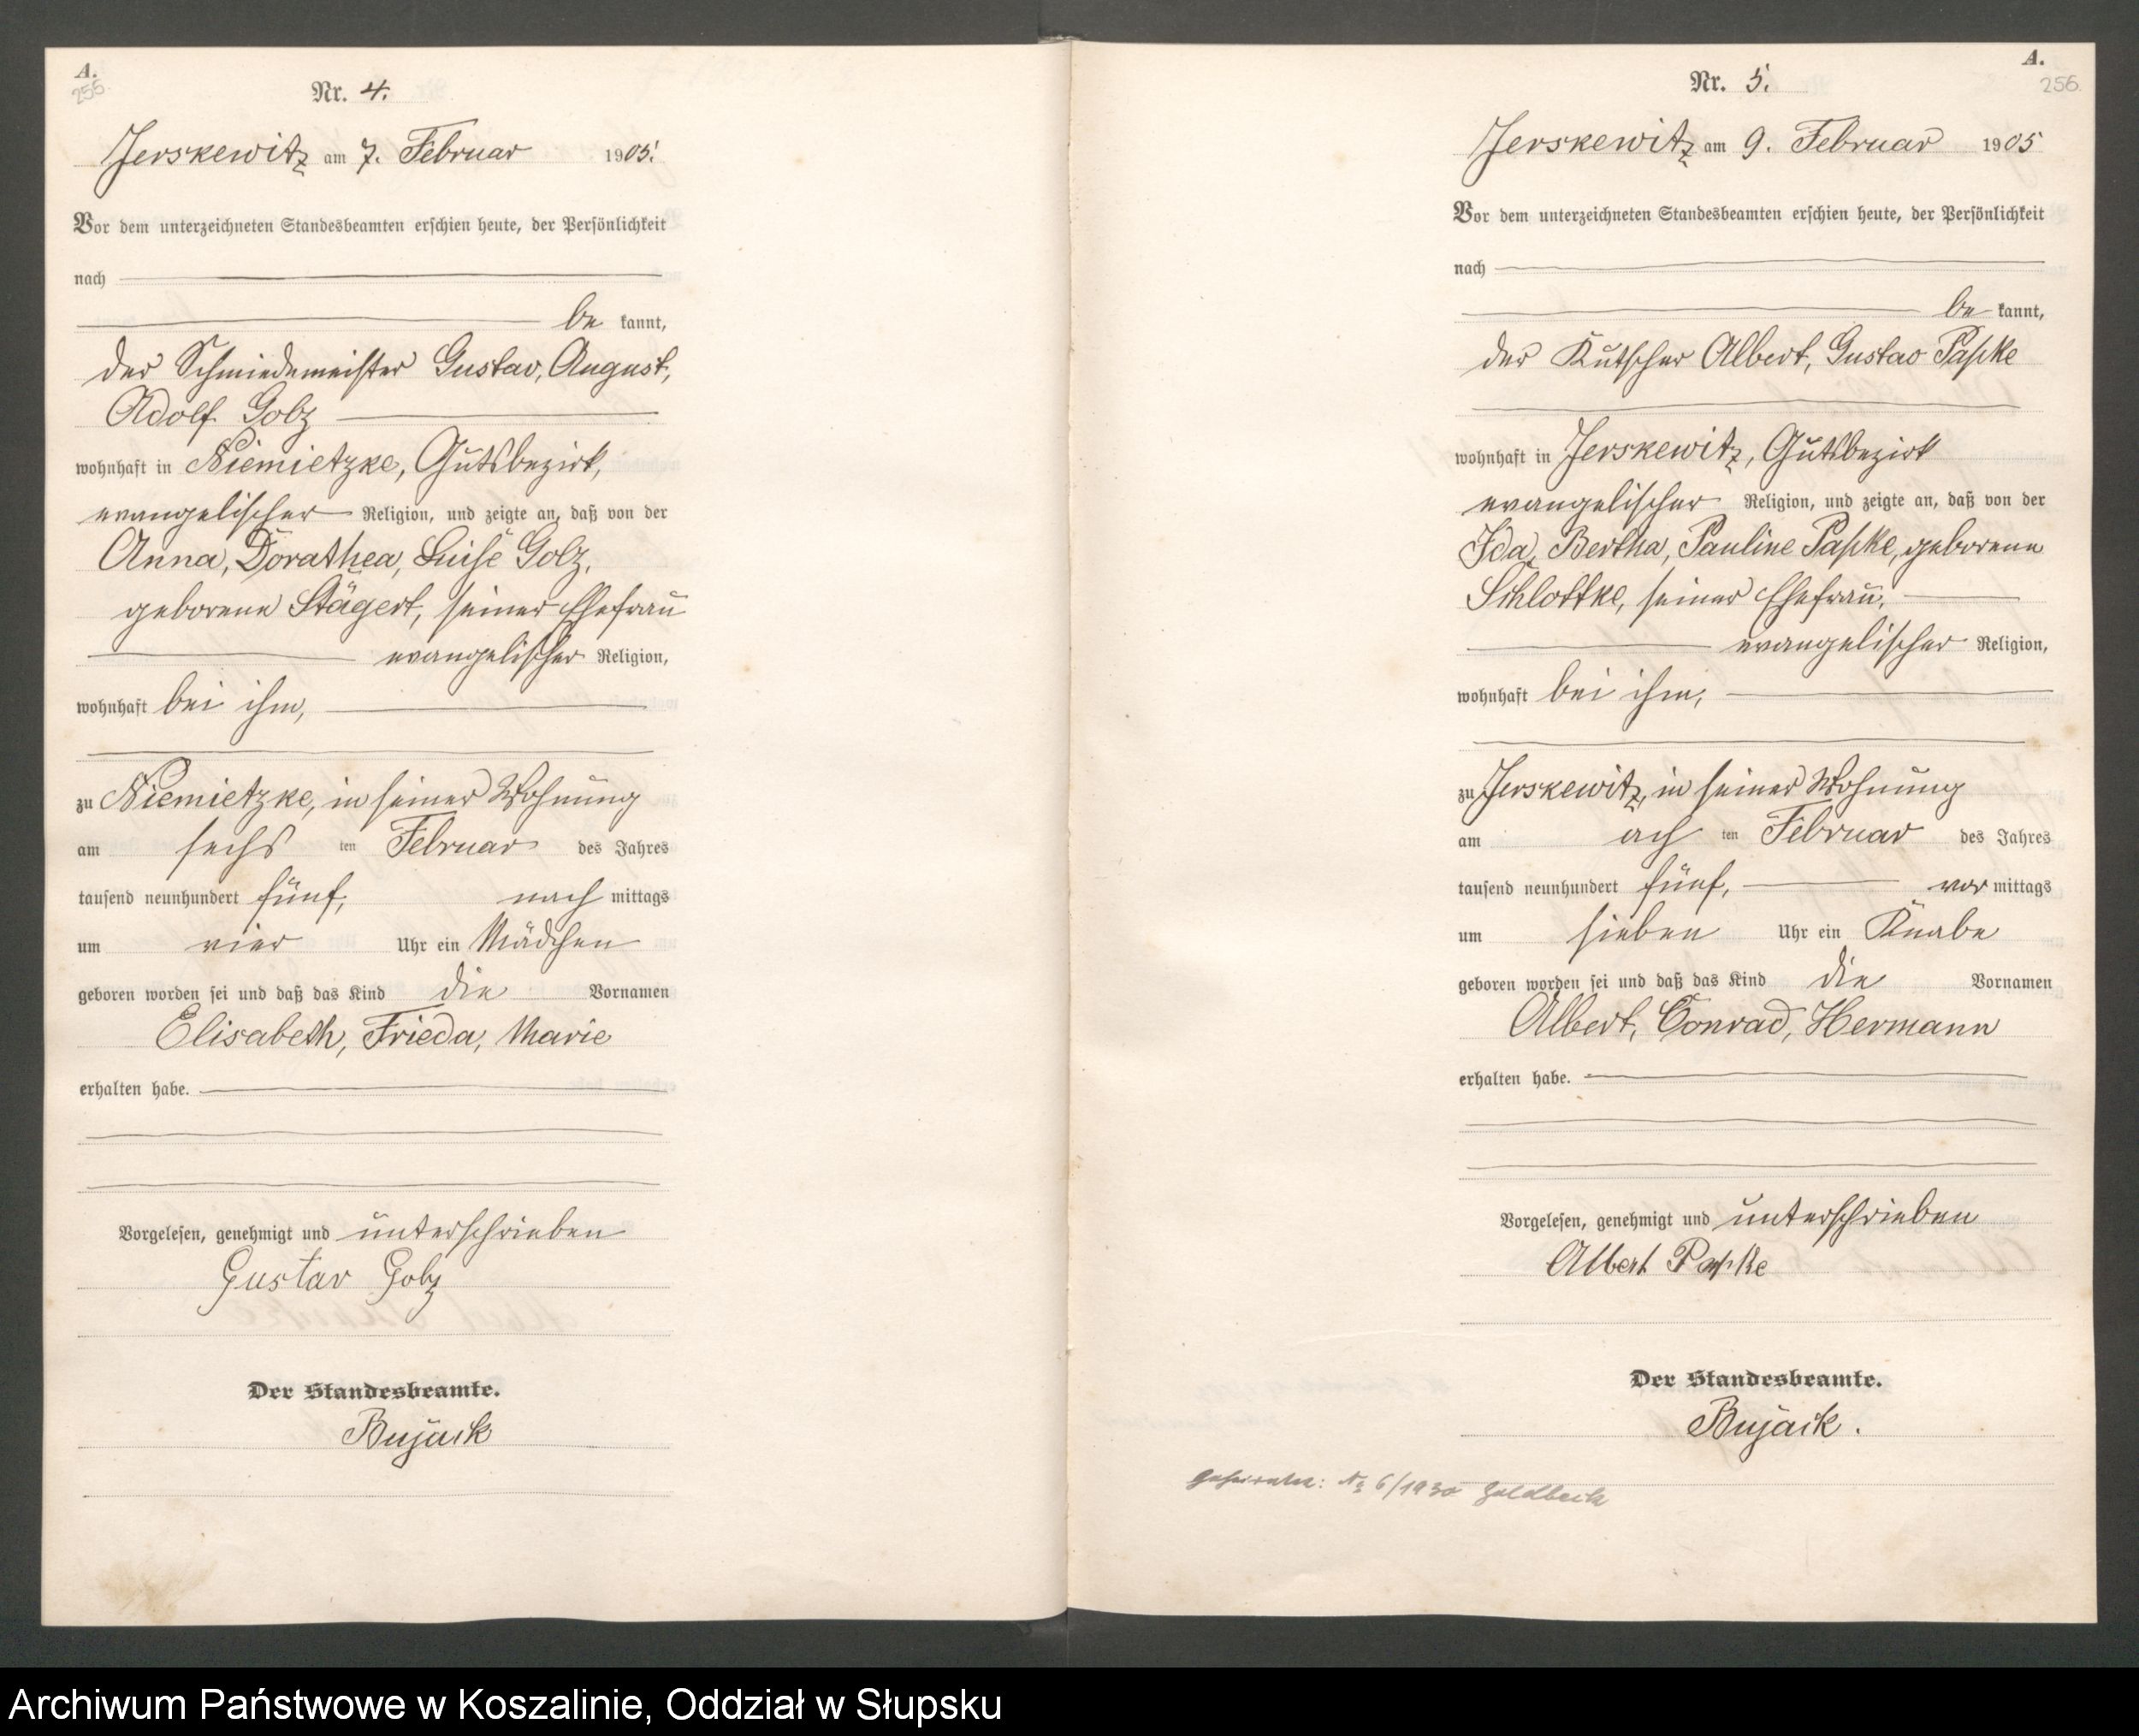 A.
255.
Nr. 4.
Jerskewitz am 7. Februar 1905.
Vor dem unterzeichneten Standesbeamten erschien heute, der Persönlichkeit
nach
be kannt,
der Schmiedemeister Gustav, August,
Adolf Golz
wohnhaft in Niemietzke, Gutsbezirk,
evangelischer Religion, und zeigte an, daß von der
Anna, Dorathea, Luise Golz,
geborene Stägert, seiner Ehefrau
evangelischer Religion,
wohnhaft bei ihm,
zu Niemietzke, in seiner Wohnung
am sechs ten Februar des Jahres
tausend neunhundert fünf, nach mittags
um vier Uhr ein Mädchen
geboren worden sei und daß das Kind die Vornamen
Elisabeth, Frieda, Marie
erhalten habe.
Vorgelesen, genehmigt und unterschrieben
Gustav Golz
Der Standesbeamte.
Bujack
A.
256.
Nr. 5.
Jerskewitz am 9. Februar 1905
Vor dem unterzeichneten Standesbeamten erschien heute, der Persönlichkeit
nach
be kannt,
der Kutscher Albert, Gustav Papke
wohnhaft in Jerskewitz, Gutsbezirk
evangelischer Religion, und zeigte an, daß von der
Ida, Bertha, Pauline Papke, geborene
Schlottke, seiner Ehefrau,
evangelischer Religion,
wohnhaft bei ihm,
zu Jerskewitz, in seiner Wohnung
am ach ten Februar des Jahres
tausend neunhundert fünf, vor mittags
um sieben Uhr ein Knabe
geboren worden sei und daß das Kind die Vornamen
Albert, Conrad, Hermann
erhalten habe.
Vorgelesen, genehmigt und unterschrieben
Albert Papke
Der Standesbeamte.
Bujack.
№ 6/1930
Archiwum Państwowe w Koszalinie, Oddział w Słupsku